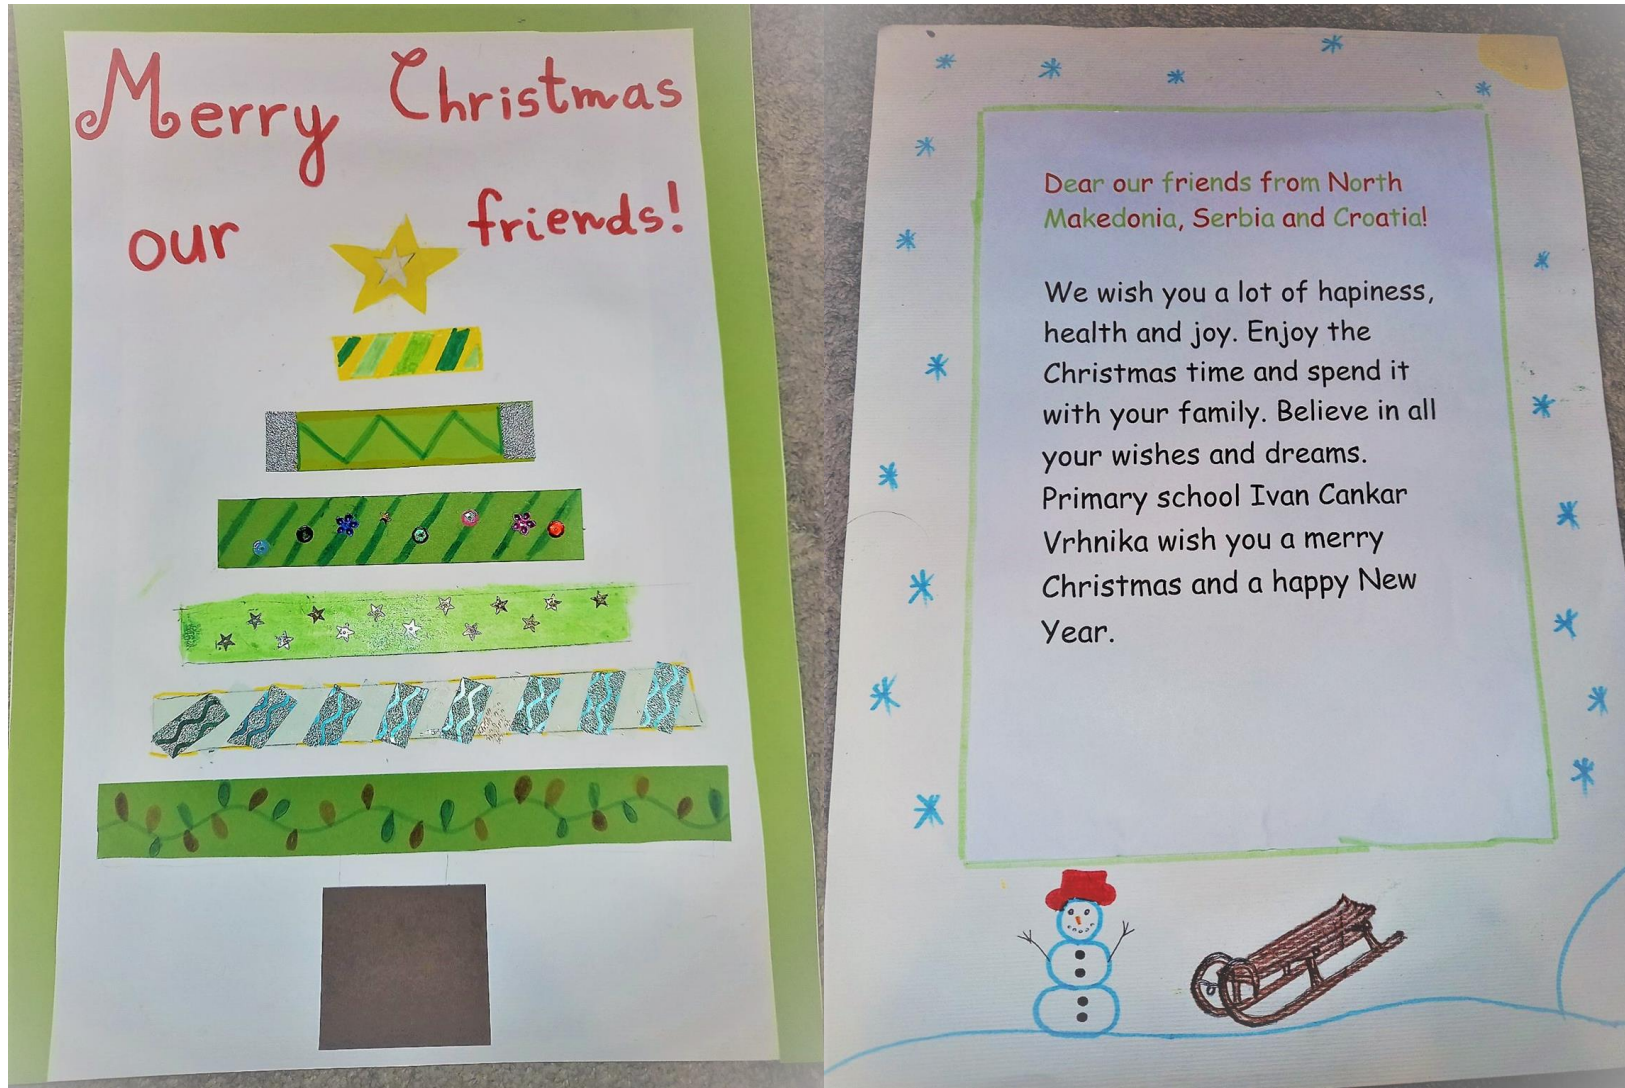 Merry Christmas
our friends!
Dear our friends from North
Makedonia, Serbia and Croatia!
We wish you a lot of hapiness,
health and joy. Enjoy the
Christmas time and spend it
with your family. Believe in all
your wishes and dreams.
Primary school Ivan Cankar
Vrhnika wish you a merry
Christmas and a happy New
Year.